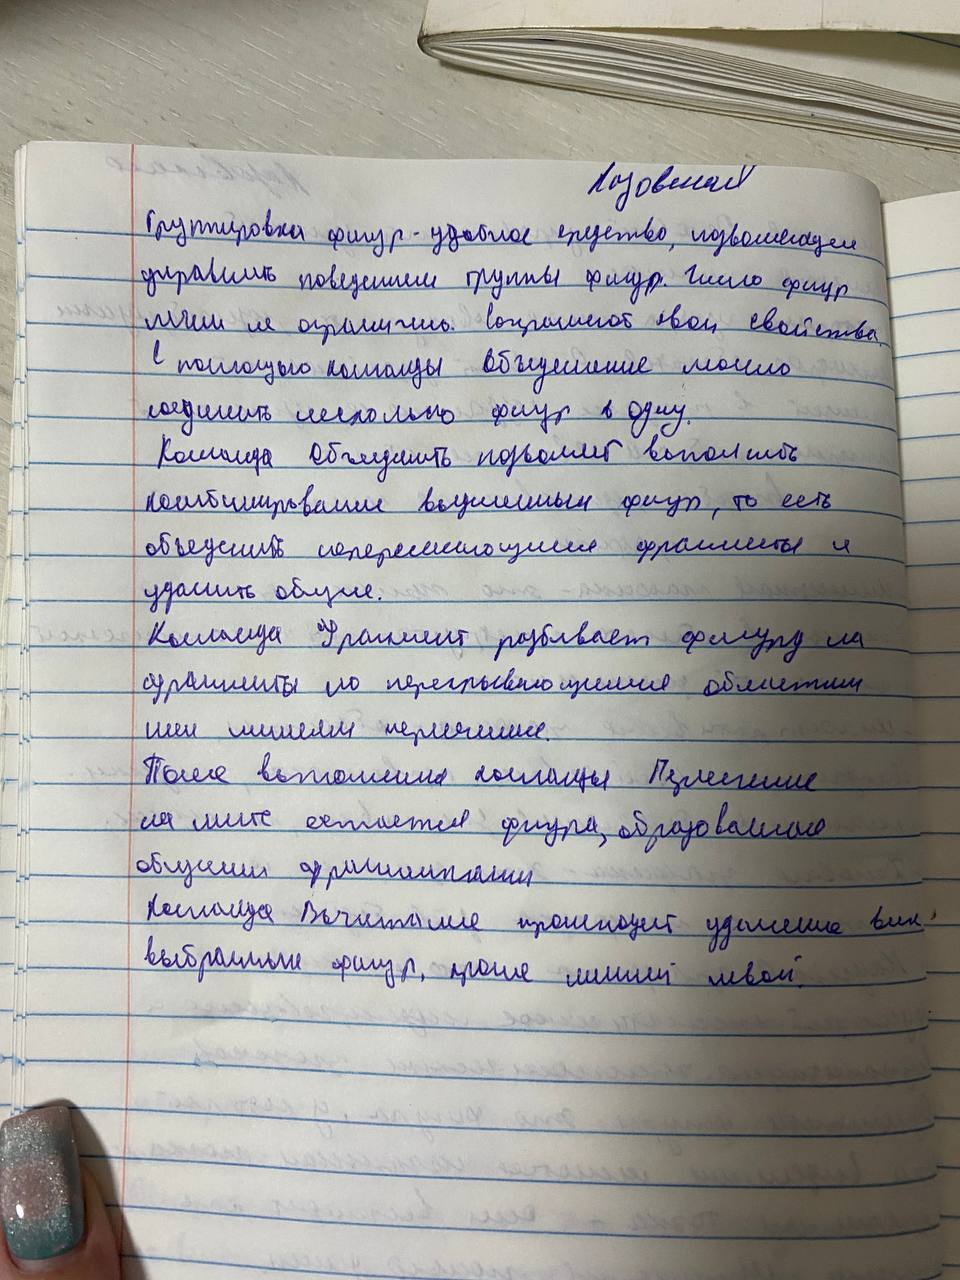 Группировка фигур - удобное средство, позволяющее
управлять поведением группы фигур. Число фигур
не ограничено. Сохраняют свои свойства.
С помощью команды Объединение можно
соединить несколько фигур в одну.
Команда Объединить позволяет выполнить
комбинирование выделенных фигур, то есть
объединить непересекающиеся фрагменты и
удалить общие.
Команда Фрагмент разбивает фигуру на
фрагменты по перекрывающимся областям
или линиям пересечения.
После выполнения команды Пересечение
на листе остается фигура, образованная
общими фрагментами
Команда Вычитание производит удаление всех
выбранных фигур, кроме самой левой.